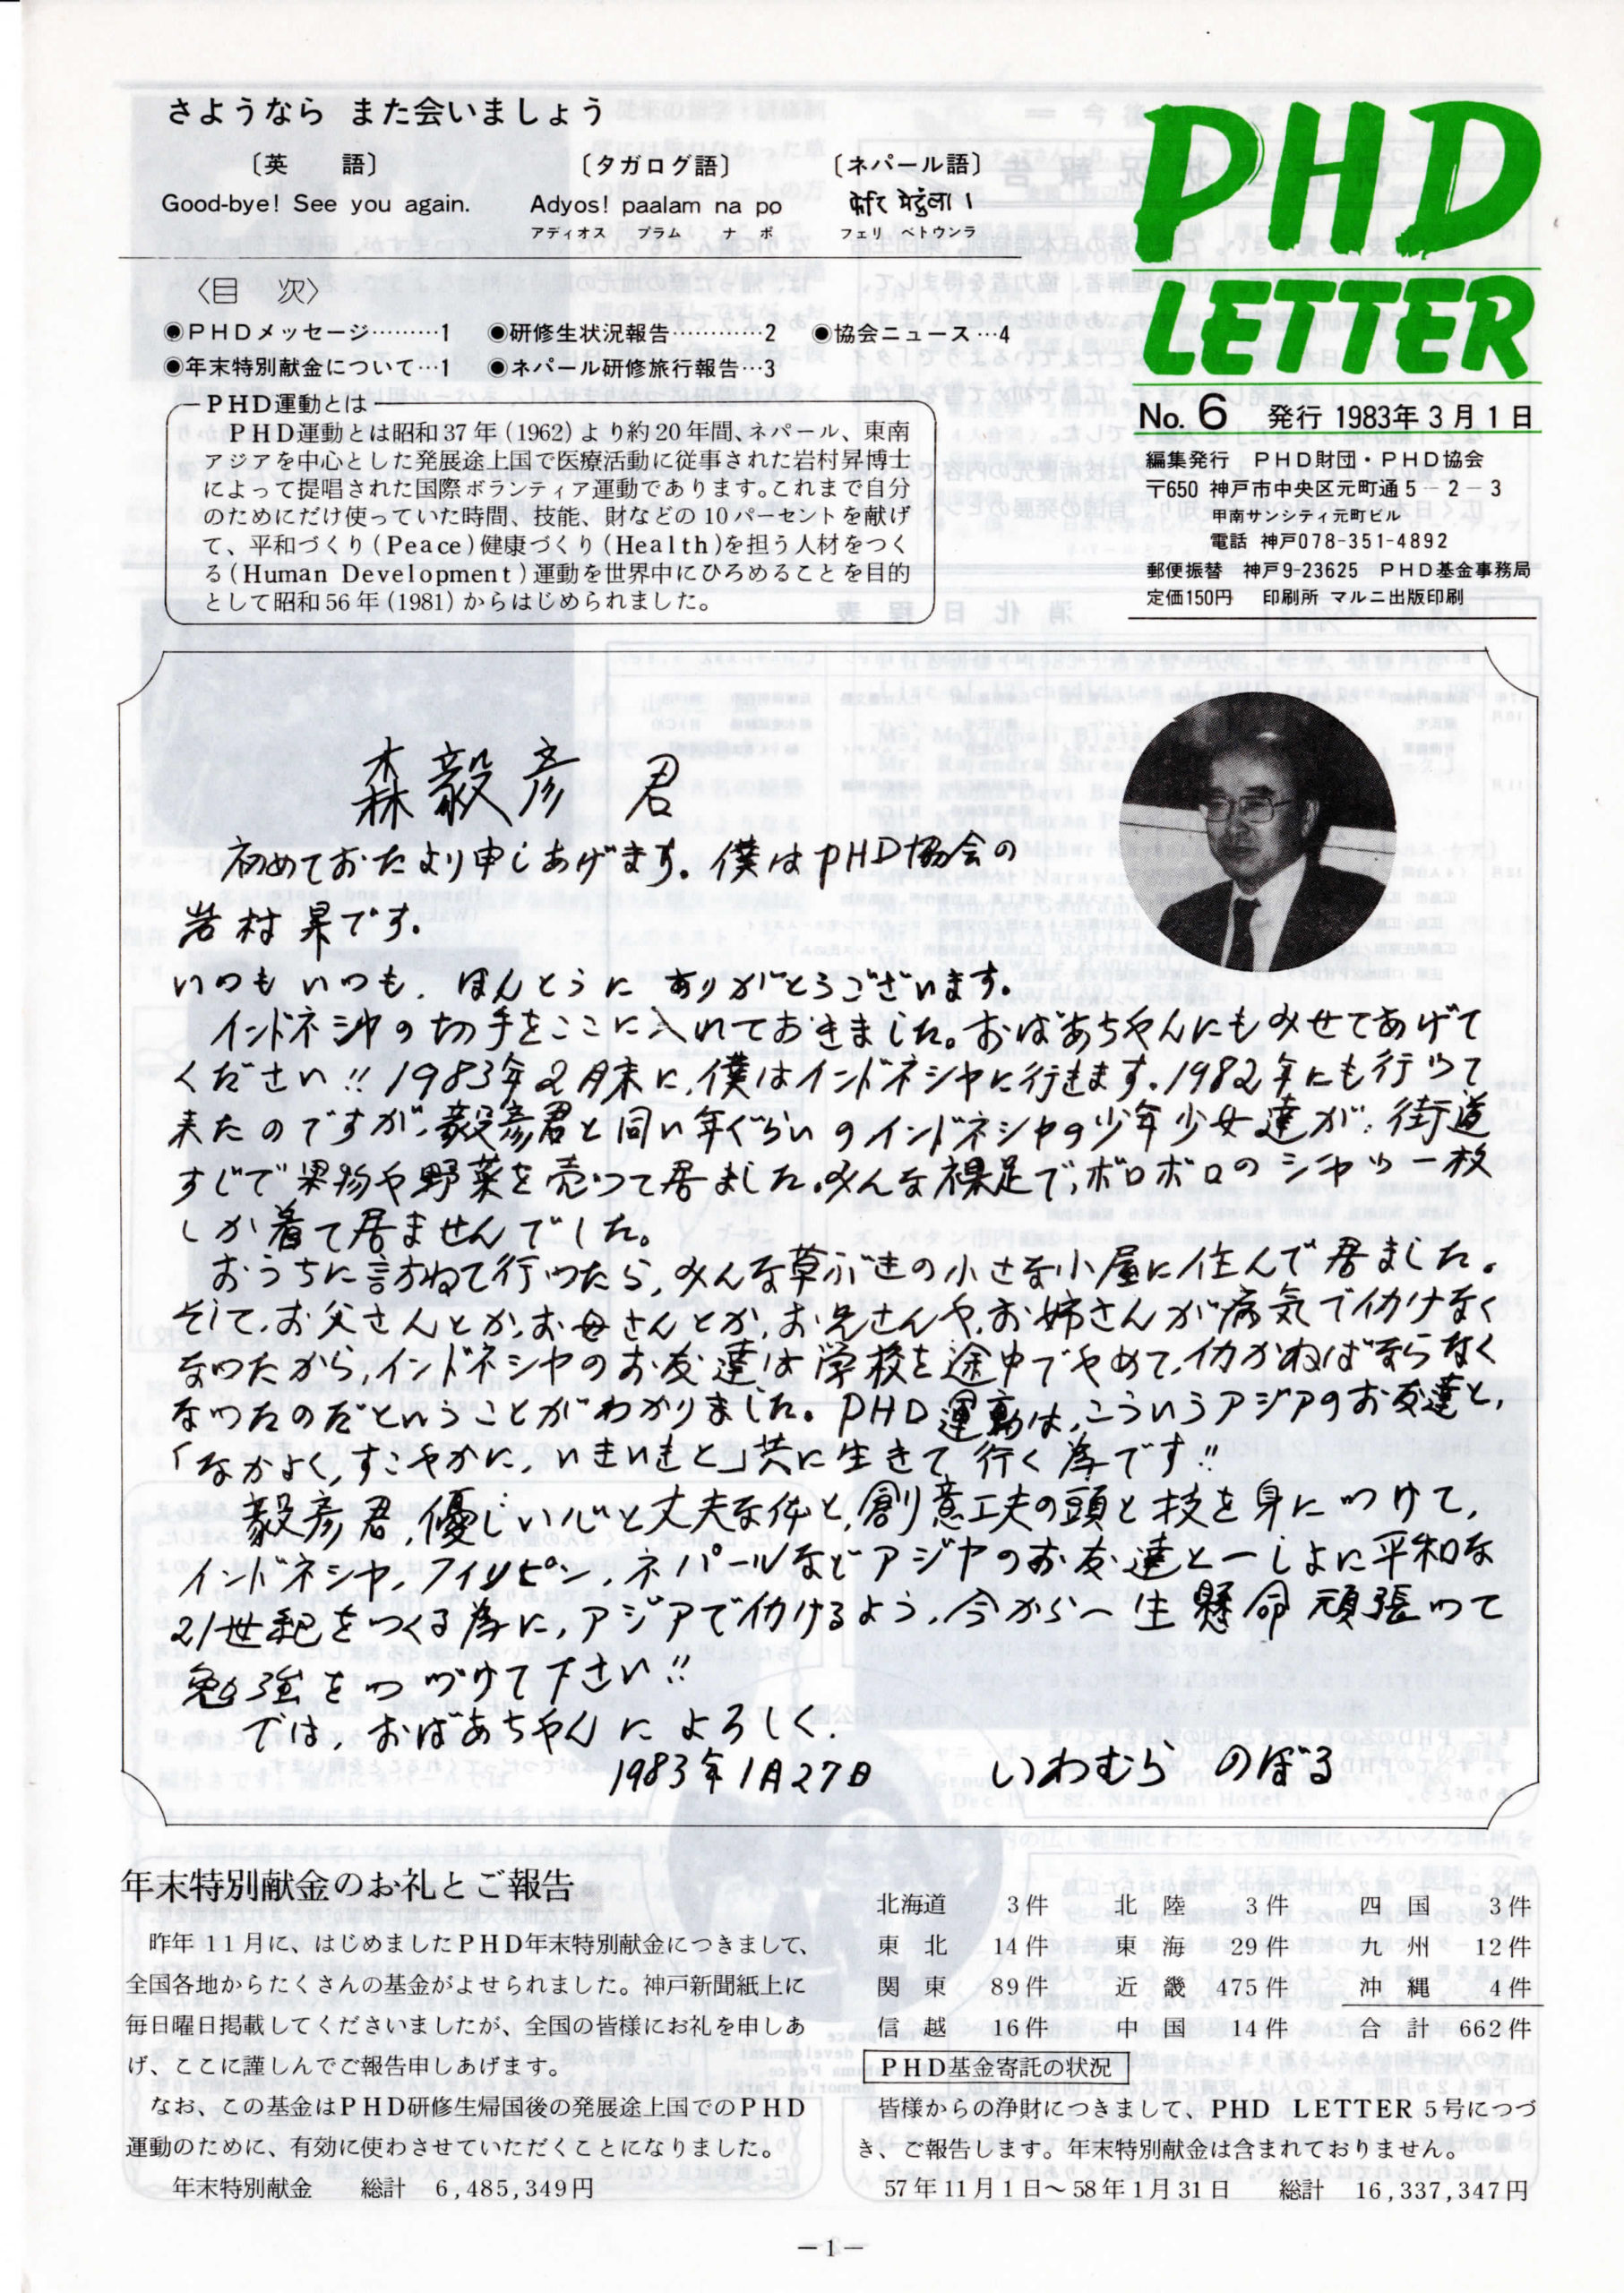 さようなら また会いましょう
〔英 語〕 〔タガログ語〕 〔ネパール語〕
Good-bye! See you again. Adyos! paalam na po
アディオス プラム ナ ポ フェリ ベトウンラ
PHD
LETTER
No. 6 発行 1983年3月1日
編集発行 PHD財団・PHD協会
〒650 神戸市中央区元町通5-2-3
甲南サンシティ元町ビル
電話 神戸078-351-4892
郵便振替 神戸9-23625 PHD基金事務局
定価150円 印刷所 マルニ出版印刷
〈目 次〉
●PHDメッセージ………1 ●研修生状況報告…………2 ●協会ニュース…4
●年末特別献金について…1 ●ネパール研修旅行報告…3
PHD運動とは
PHD運動とは昭和37年(1962)より約20年間、ネパール、東南
アジアを中心とした発展途上国で医療活動に従事された岩村昇博士
によって提唱された国際ボランティア運動であります。これまで自分
のためにだけ使っていた時間、技能、財などの10パーセントを献げ
て、平和づくり(Peace)健康づくり(Health)を担う人材をつく
る(Human Development)運動を世界中にひろめることを目的
として昭和56年(1981)からはじめられました。
森毅彦 君
初めておたより申しあげます。僕はPHD協会の
岩村昇です。
いつもいつも、ほんとうに ありがとうございます。
インドネシヤの切手をここに入れておきました。おばあちやんにもみせてあげて
ください!! 1983年2月末に、僕はインドネシヤに行きます。1982年にも行つて
来たのですが、毅彦君と同い年ぐらいのインドネシヤの少年少女達が、街道
すじで果物や野菜を売つて居ました。みんな裸足で、ボロボロのシャツ一枚
しか着て居ませんでした。
おうちに訪ねて行つたら、みんな草ぶきの小さな小屋に住んで居ました。
そして、お父さんとか、お母さんとか、お兄さんや、お姉さんが病気で働けなく
なつたから、インドネシヤのお友達は学校を途中でやめて、働かねばならなく
なつたのだということがわかりました。PHD運動は、こういうアジアのお友達と、
「なかよく、すこやかに、いきいきと」共に生きて行く為です!!
毅彦君、優しい心と丈夫な体と、創意工夫の頭と技を身につけて、
インドネシヤ、フィリピン、ネパールなどアジヤのお友達と一しよに平和な
21世紀をつくる為に、アジアで働けるよう、今から一生懸命頑張つて
勉強をつづけて下さい!!
では、おばあちやんによろしく。
1983年1月27日 いわむら のぼる
年末特別献金のお礼とご報告
昨年11月に、はじめましたPHD年末特別献金につきまして、
全国各地からたくさんの基金がよせられました。神戸新聞紙上に
毎日曜日掲載してくださいましたが、全国の皆様にお礼を申しあ
げ、ここに謹しんでご報告申しあげます。
なお、この基金はPHD研修生帰国後の発展途上国でのPHD
運動のために、有効に使わさせていただくことになりました。
年末特別献金 総計 6,485,349円
北海道 3件 北 陸 3件 四 国 3件
東 北 14件 東 海 29件 九 州 12件
関 東 89件 近 畿 475件 沖 縄 4件
信 越 16件 中 国 14件 合 計 662件
PHD基金寄託の状況
皆様からの浄財につきまして、PHD LETTER 5号につづ
き、ご報告します。年末特別献金は含まれておりません。
57年11月1日～58年1月31日 総計 16,337,347円
—1—